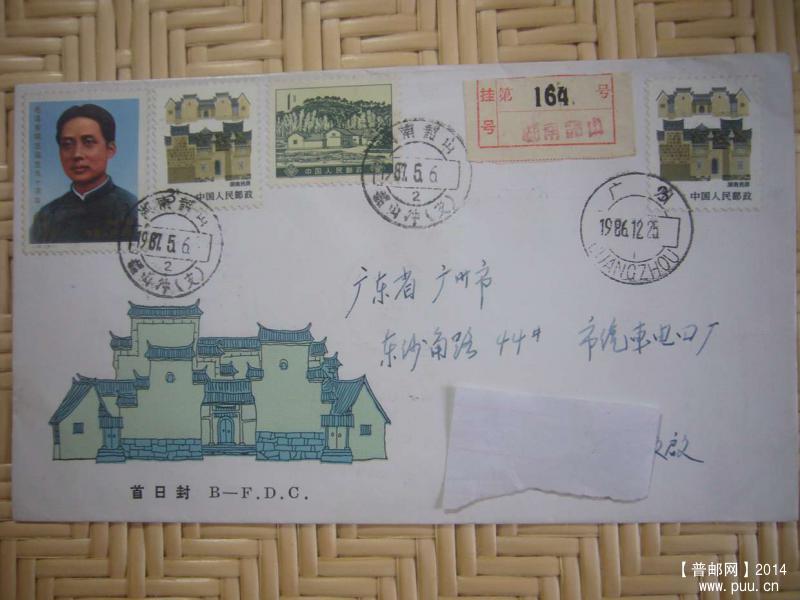 中国人民邮政
湖南民居
中国人民邮政
挂号
第 164 号
湖南韶山
中国人民邮政
湖南民居
湖南韶山
1987.5.6
2
湖南韶山
1987.5.6
2
广州
1986.12.25
1
GUANGZHOU
广东省 广州市
东沙角路 44# 市汽車电口厂
啟
首日封 B—F.D.C.
【普邮网】2014
www.puu.cn